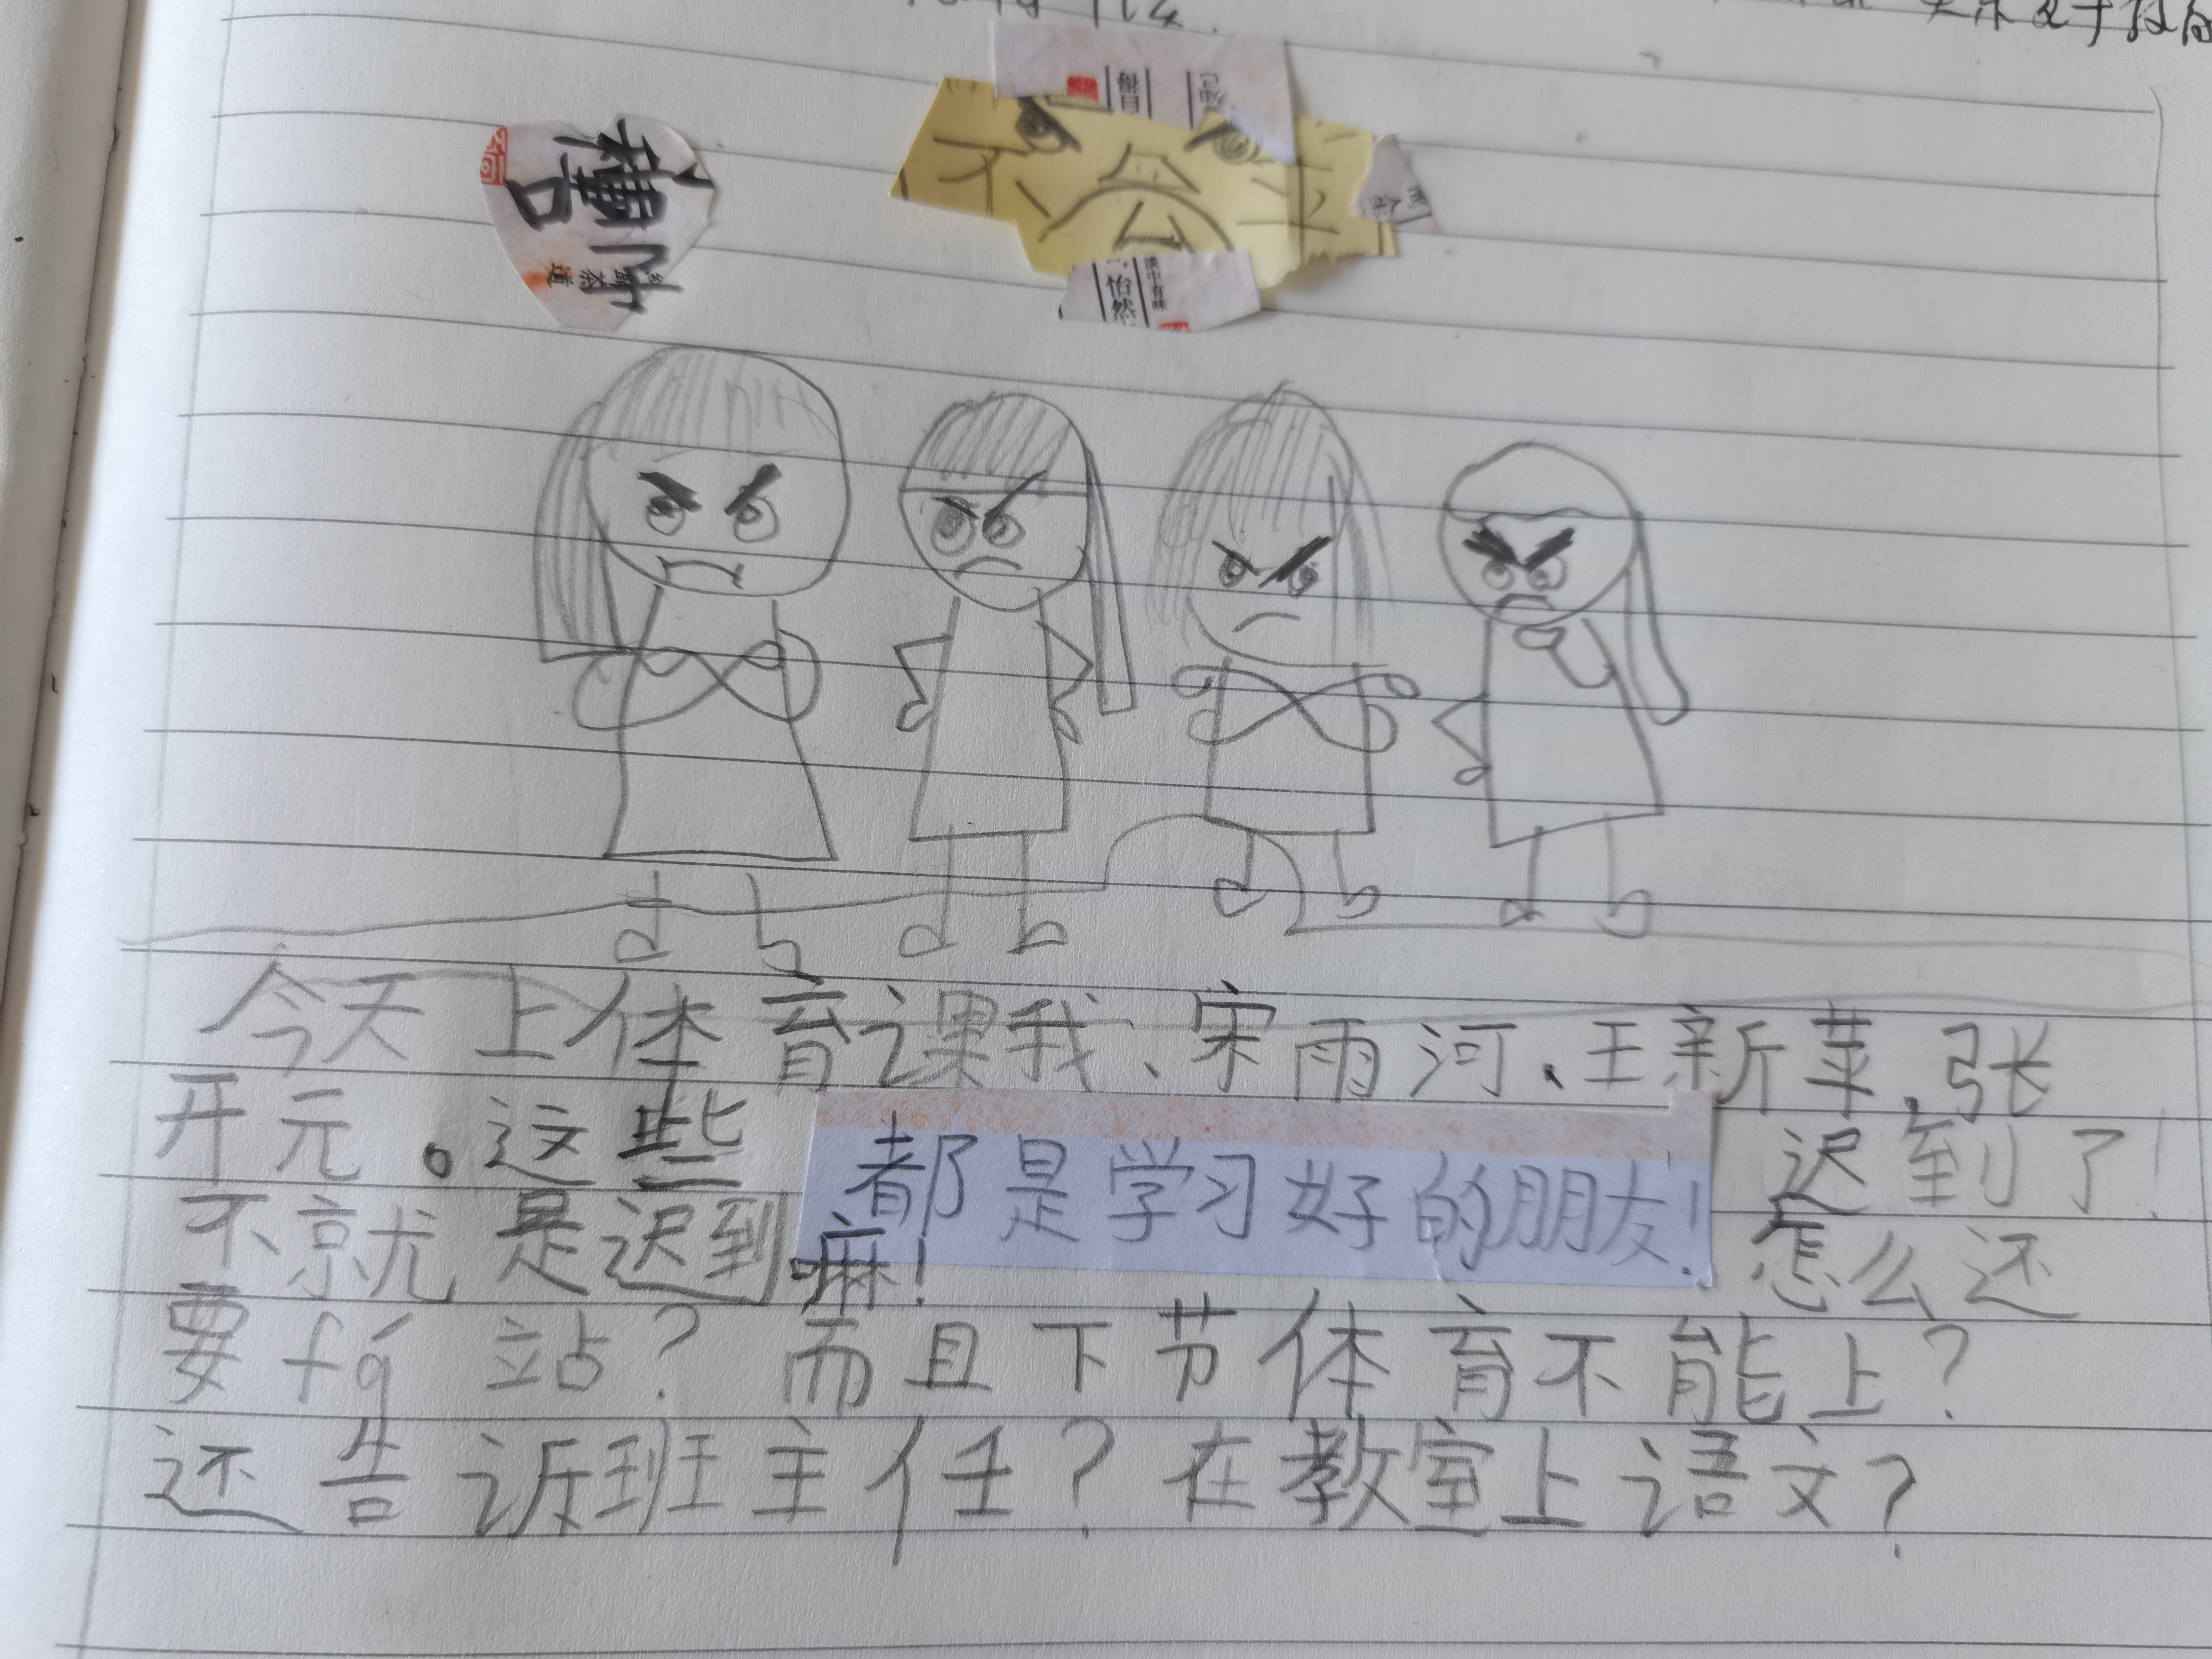 怡然
今天上体育课我、宋雨河、王新苹、张
开元。这些都是学习好的朋友!迟到了!
不就是迟到嘛!怎么还
要fá站?而且下节体育不能上?
还告诉班主任?在教室上语文?